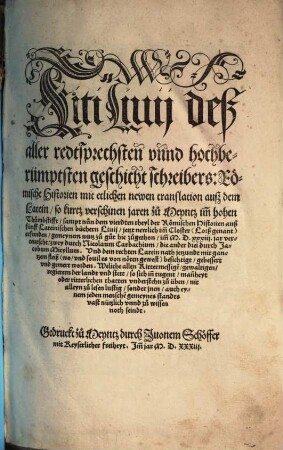 Titi Liuij deß
aller redtsprechsten vnnd hochbe-
rümptsten geschicht schreibers: Rö-
mische Historien mit etlichen newen translation auß dem
Latein / so kurtz verschinen jaren zů Meyntz im hohen
Thůmstifft / sampt nun dem vierdten theyl der Römischen Histarien auß
fünff Lateinischen büchern Liuij / jetzt newlich im Closter (Lorß genant)
erfunden / gemeynem nutz zů gůt biß zůgethon / im M. D. xxvij. jar ver-
meutscht / zwey durch Nicolaum Carbachium / die ander drei durch Ja-
cobum Micyllum. Vnd dem rechten Latein nach jetzunde mit gan-
tzen fleiß (wo / vnd souil es von nöten gewest) besichtigt / gebessert
vnd gemert worden. Welche allen Rittermessige / gewaltigen /
regierern der landt vnd stett / so sich in tugent / mañheyt
oder ritterlichen thatten vndersteen zů üben / nit
alleyn zů lesen lustig / sonder jnen / auch ey-
nen jeden mensche gemeynes standts
vast nützlich vnnd zů wissen
noth seindt.
Getruckt zů Meyntz durch Juonem Schöffer
mit Keyserlicher freiheyt. Im jar M. D. XXXiij.